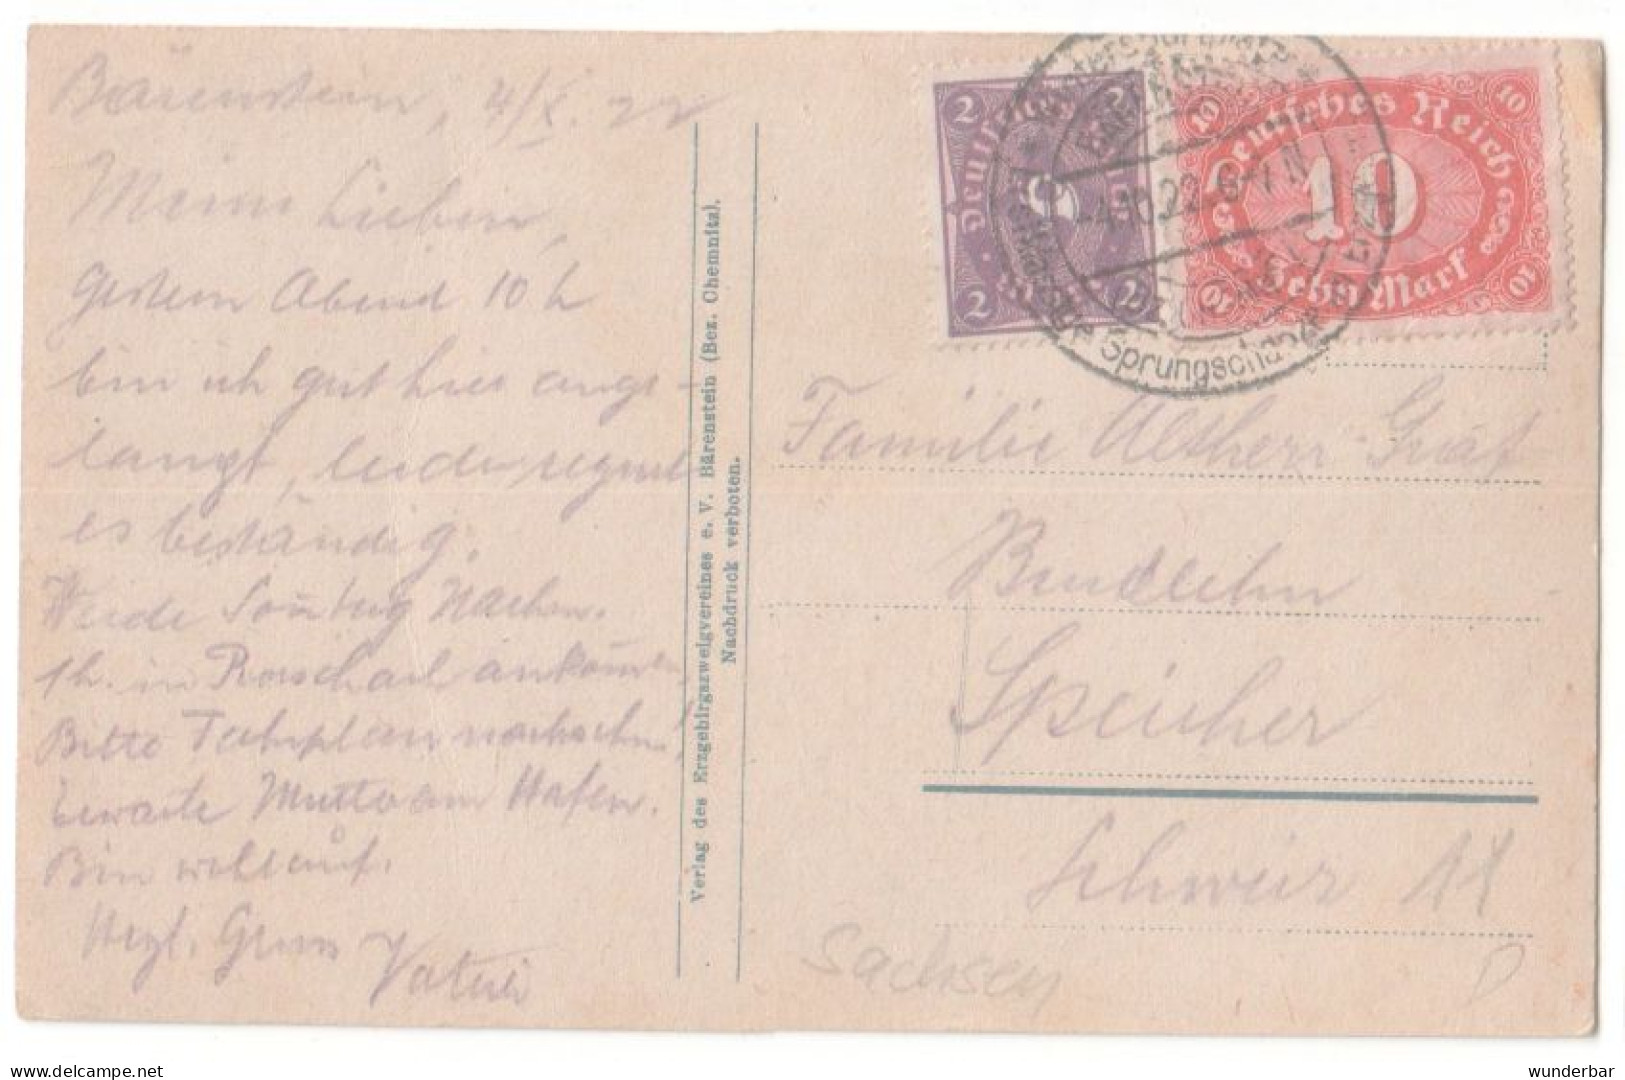 Bärenstein, 4/X. 22
Meine Lieben,
gestern Abend 10 h
bin ich gut hier ange-
langt, leider regnet
es beständig.
Werde Sonntag Nachm.
1 h. in Rorschach ankommen,
Bitte Fahrplan nachsehen!
Erwarte Mutter am Hafen.
Bin wohlauf.
Hrzl. Gruss
Vater
Verlag des Erzgebirgszweigvereines e. V. Bärenstein (Bez. Chemnitz).
Nachdruck verboten.
2 2
Deutsches Reich
2
Mark
2 2
10 10
Deutsches Reich
10
Zehn Mark
10 10
Wintersportplatz
BÄRENSTEIN
-4.10.22 6-7 N
Sprungschanze
Familie Altherr-Graf
Speicher
Schweiz
Sachsen